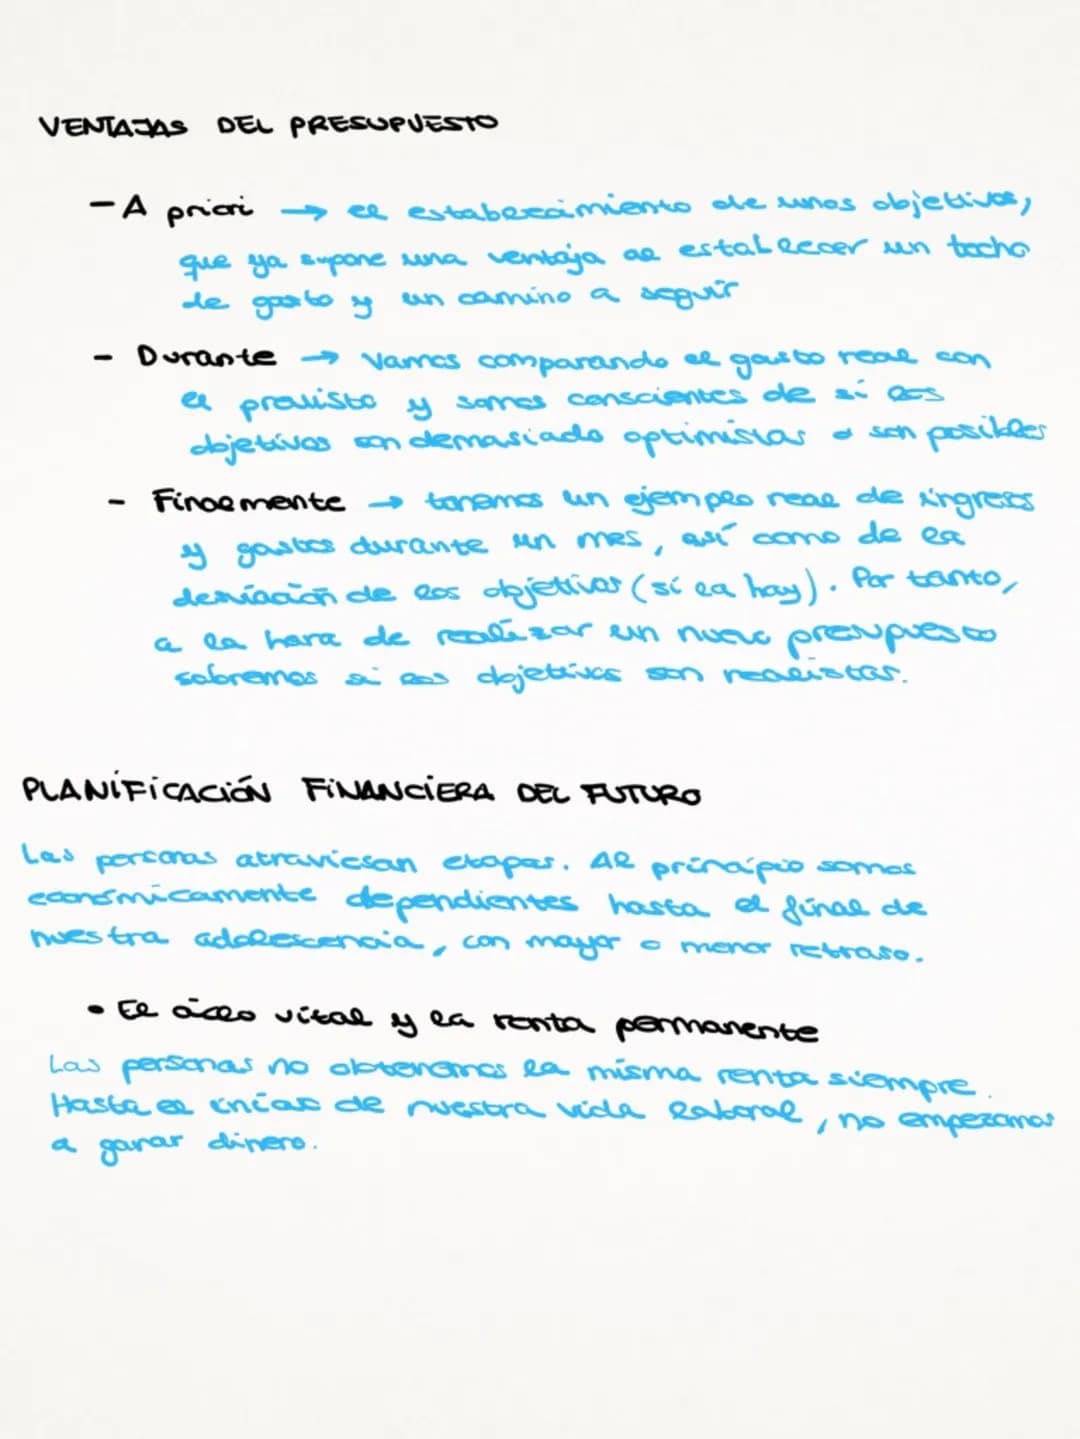 VENTAJAS DEL PRESUPUESTO
- A priori → el establecimiento de unos objetivos,
que ya supone una ventaja al establecer un techo
de gasto y un camino a seguir
- Durante → Vamos comparando el gasto real con
el previsto y somos conscientes de sí los
objetivos son demasiado optimistas o son posibles
- Finalmente → tenemos un ejemplo real de ingresos
y gastos durante un mes, así como de la
desviación de los objetivos (sí la hay). Por tanto,
a la hora de realizar un nuevo presupuesto
sabremos si los objetivos son realistas.
PLANÍFICACIÓN FINANCIERA DEL FUTURO
Las personas atraviesan etapas. Al principio somos
económicamente dependientes hasta el final de
nuestra adolescencia, con mayor o menor retraso.
• El ciclo vital y la renta permanente
Las personas no obtenemos la misma renta siempre.
Hasta el inicio de nuestra vida laboral, no empezamos
a ganar dinero.